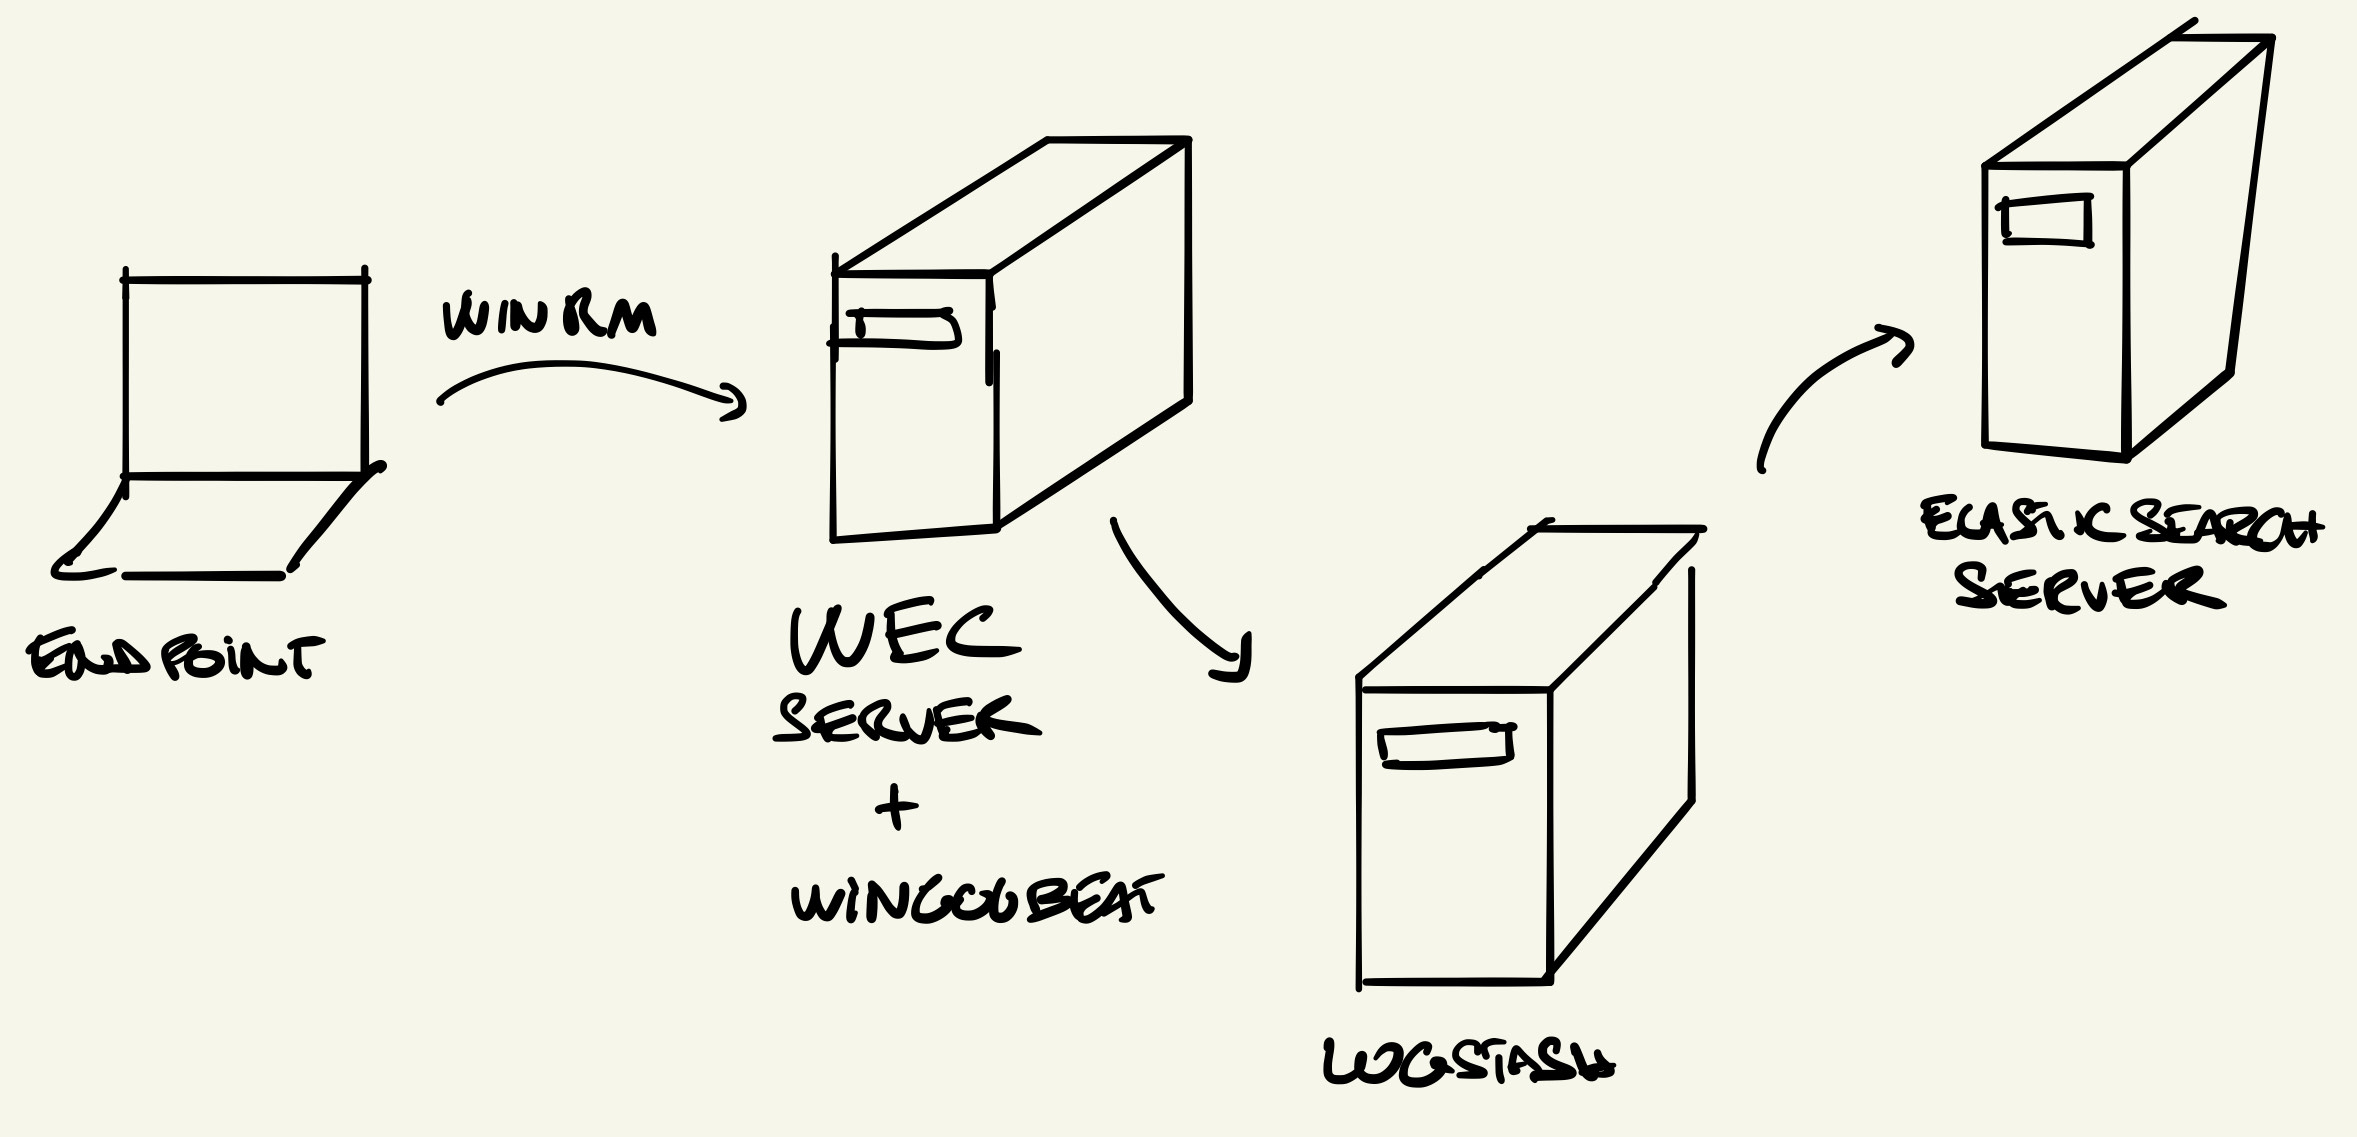 ENDPOINT
WINRM
WEC
SERVER
+
WINLOGBEAT
LOGSTASH
ELASTICSEARCH
SERVER